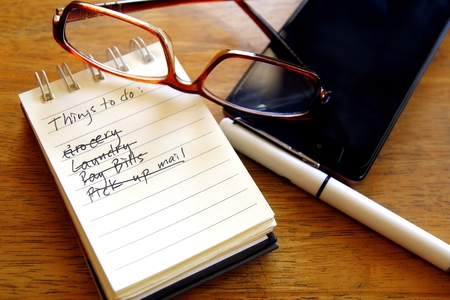 Things to do:
Grocery
Laundry
Pay Bills
Pick up mail